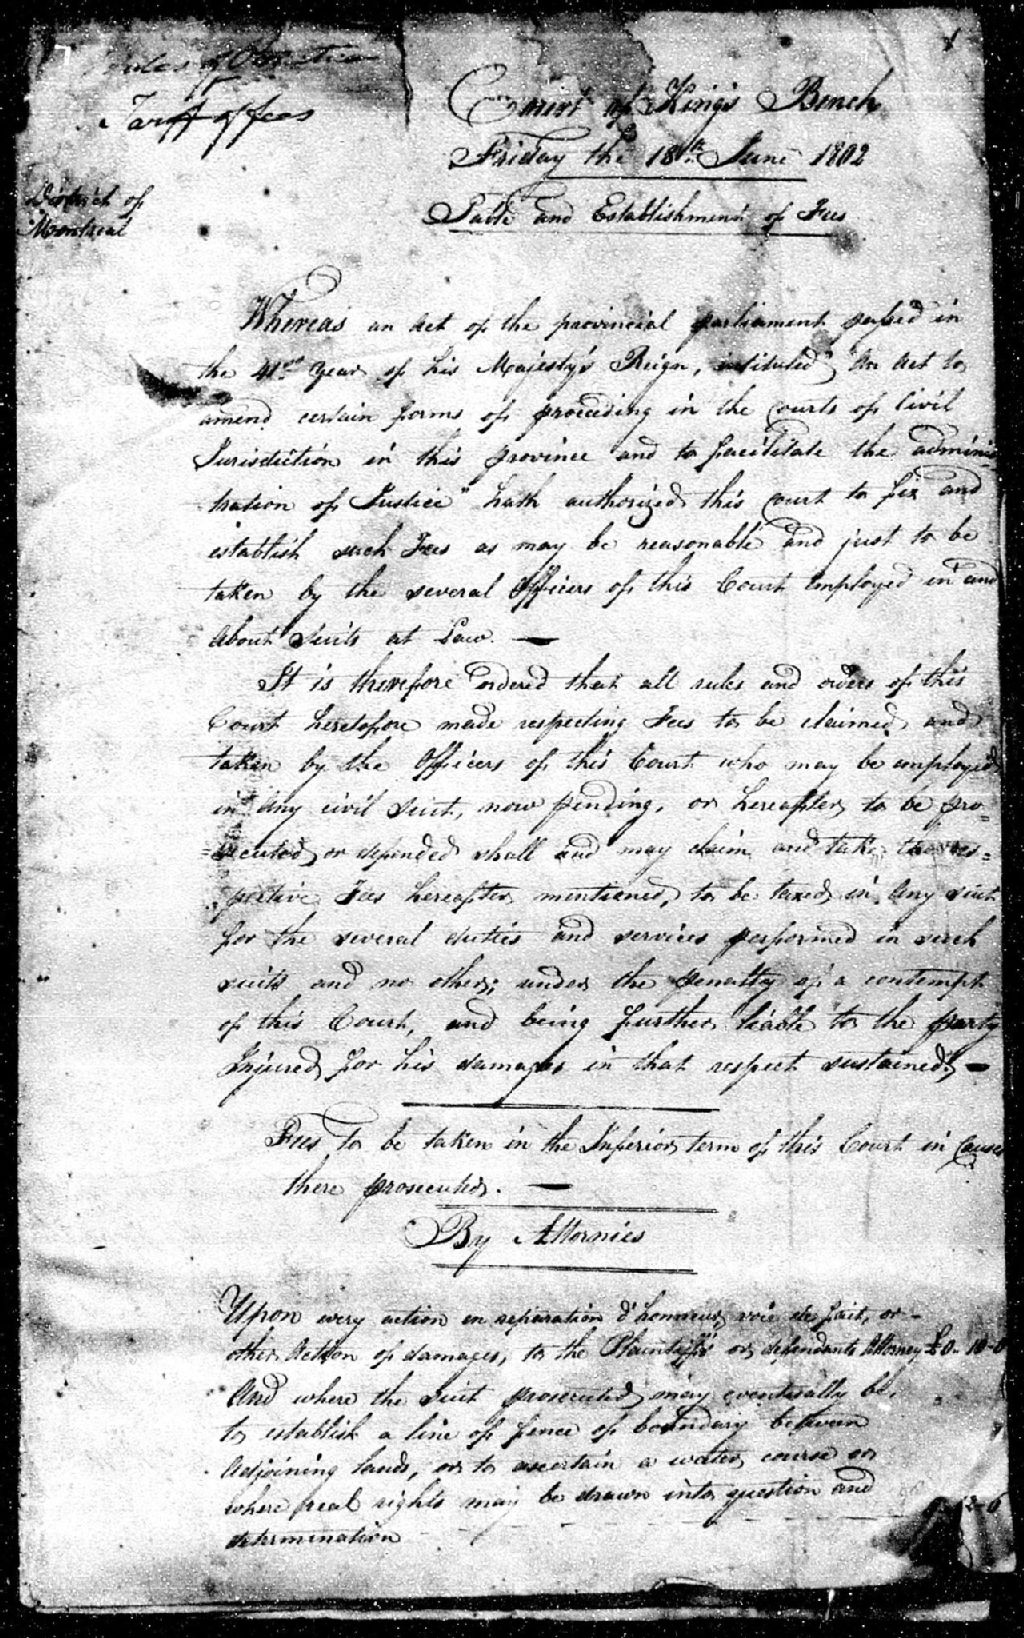 Rules of
Tariff of fees
District of
Montreal
Court of King's Bench
Friday the 18th June 1802
Table and Establishment of Fees
Whereas an Act of the provincial parliament passed in
the 41st Year of his Majesty's Reign, intituled "An Act to
amend certain forms of proceeding in the Courts of Civil
Jurisdiction in this province and to facilitate the adminis
tration of Justice" hath authorized this Court to fix and
establish such Fees as may be reasonable and just to be
taken by the several Officers of this Court Employed in and
About Suits at Law. —
It is therefore ordered that all rules and orders of this
Court heretofore made respecting Fees to be claimed and
taken by the Officers of this Court who may be employed
in any civil suit, now pending, or hereafter to be pro=
=secuted or defended shall and may claim and take the res=
pective Fees hereafter mentioned, to be taxed in Any suit
for the several duties and services performed in such
suits and no other; under the penalty of a contempt
of this Court, and being further liable to the party
Injured for his damages in that respect sustained, —
Fees to be taken in the Inferior term of this Court in Causes
there prosecuted. —
By Attornies
Upon every action en reparation d'honneur, voie de fait, or
other Action of damages, to the Plaintiff's or defendants Attorney £0-10-0
And where the Suit prosecuted may eventually be,
to establish a line of fence of boundary between
Adjoining lands, or to ascertain a water course or
where real rights may be drawn into question and
determination 12-6